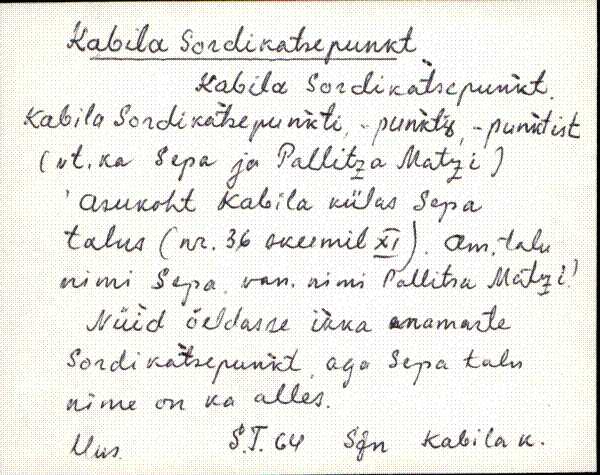 Kabila Sordikatsepunkt
Kabila Sordikàtsepuǹkt.
Kabila Sordikàtsepuǹkti, -puǹkti, -puǹktist
(vt. ka Sepa ja Pallitza Matzi)
'Asukoht Kabila külas Sepa
talus (nr. 36 skeemil XI). Am. talu
nimi Sepa, van. nimi Pallitsa Matzi.'
Nüid öeldasse ikka enamaste
Sordikàtsepuǹkt, aga Sepa talu
nime on ka alles.
Mus. S.T. 64 Sjn Kabila k.